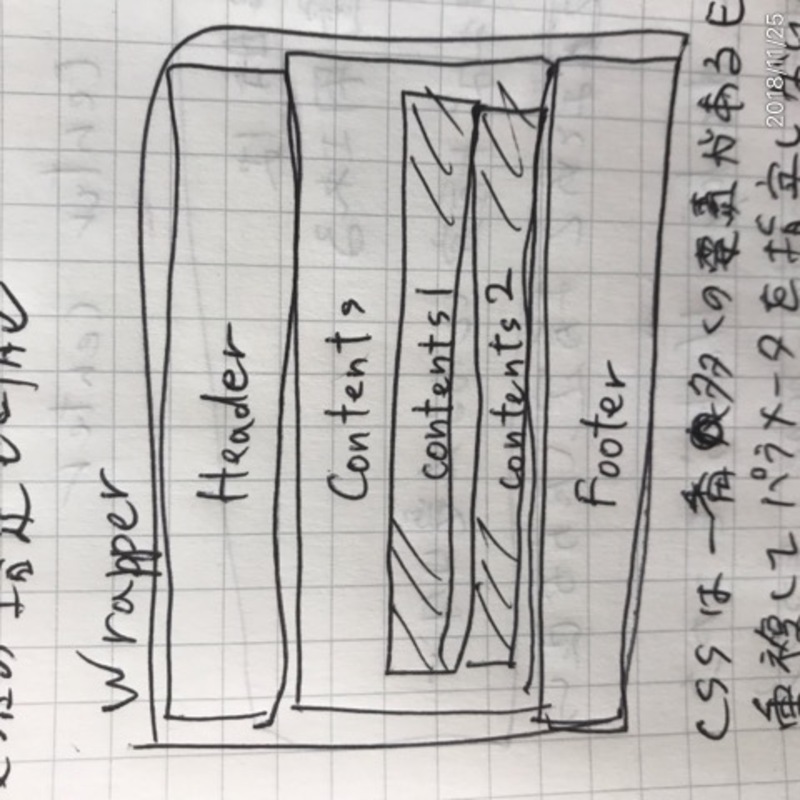 Wrapper
Header
Contents
contents1
contents2
Footer
CSSは一番多くの要素がある
重複してパラメータを指定しない
2018/11/25